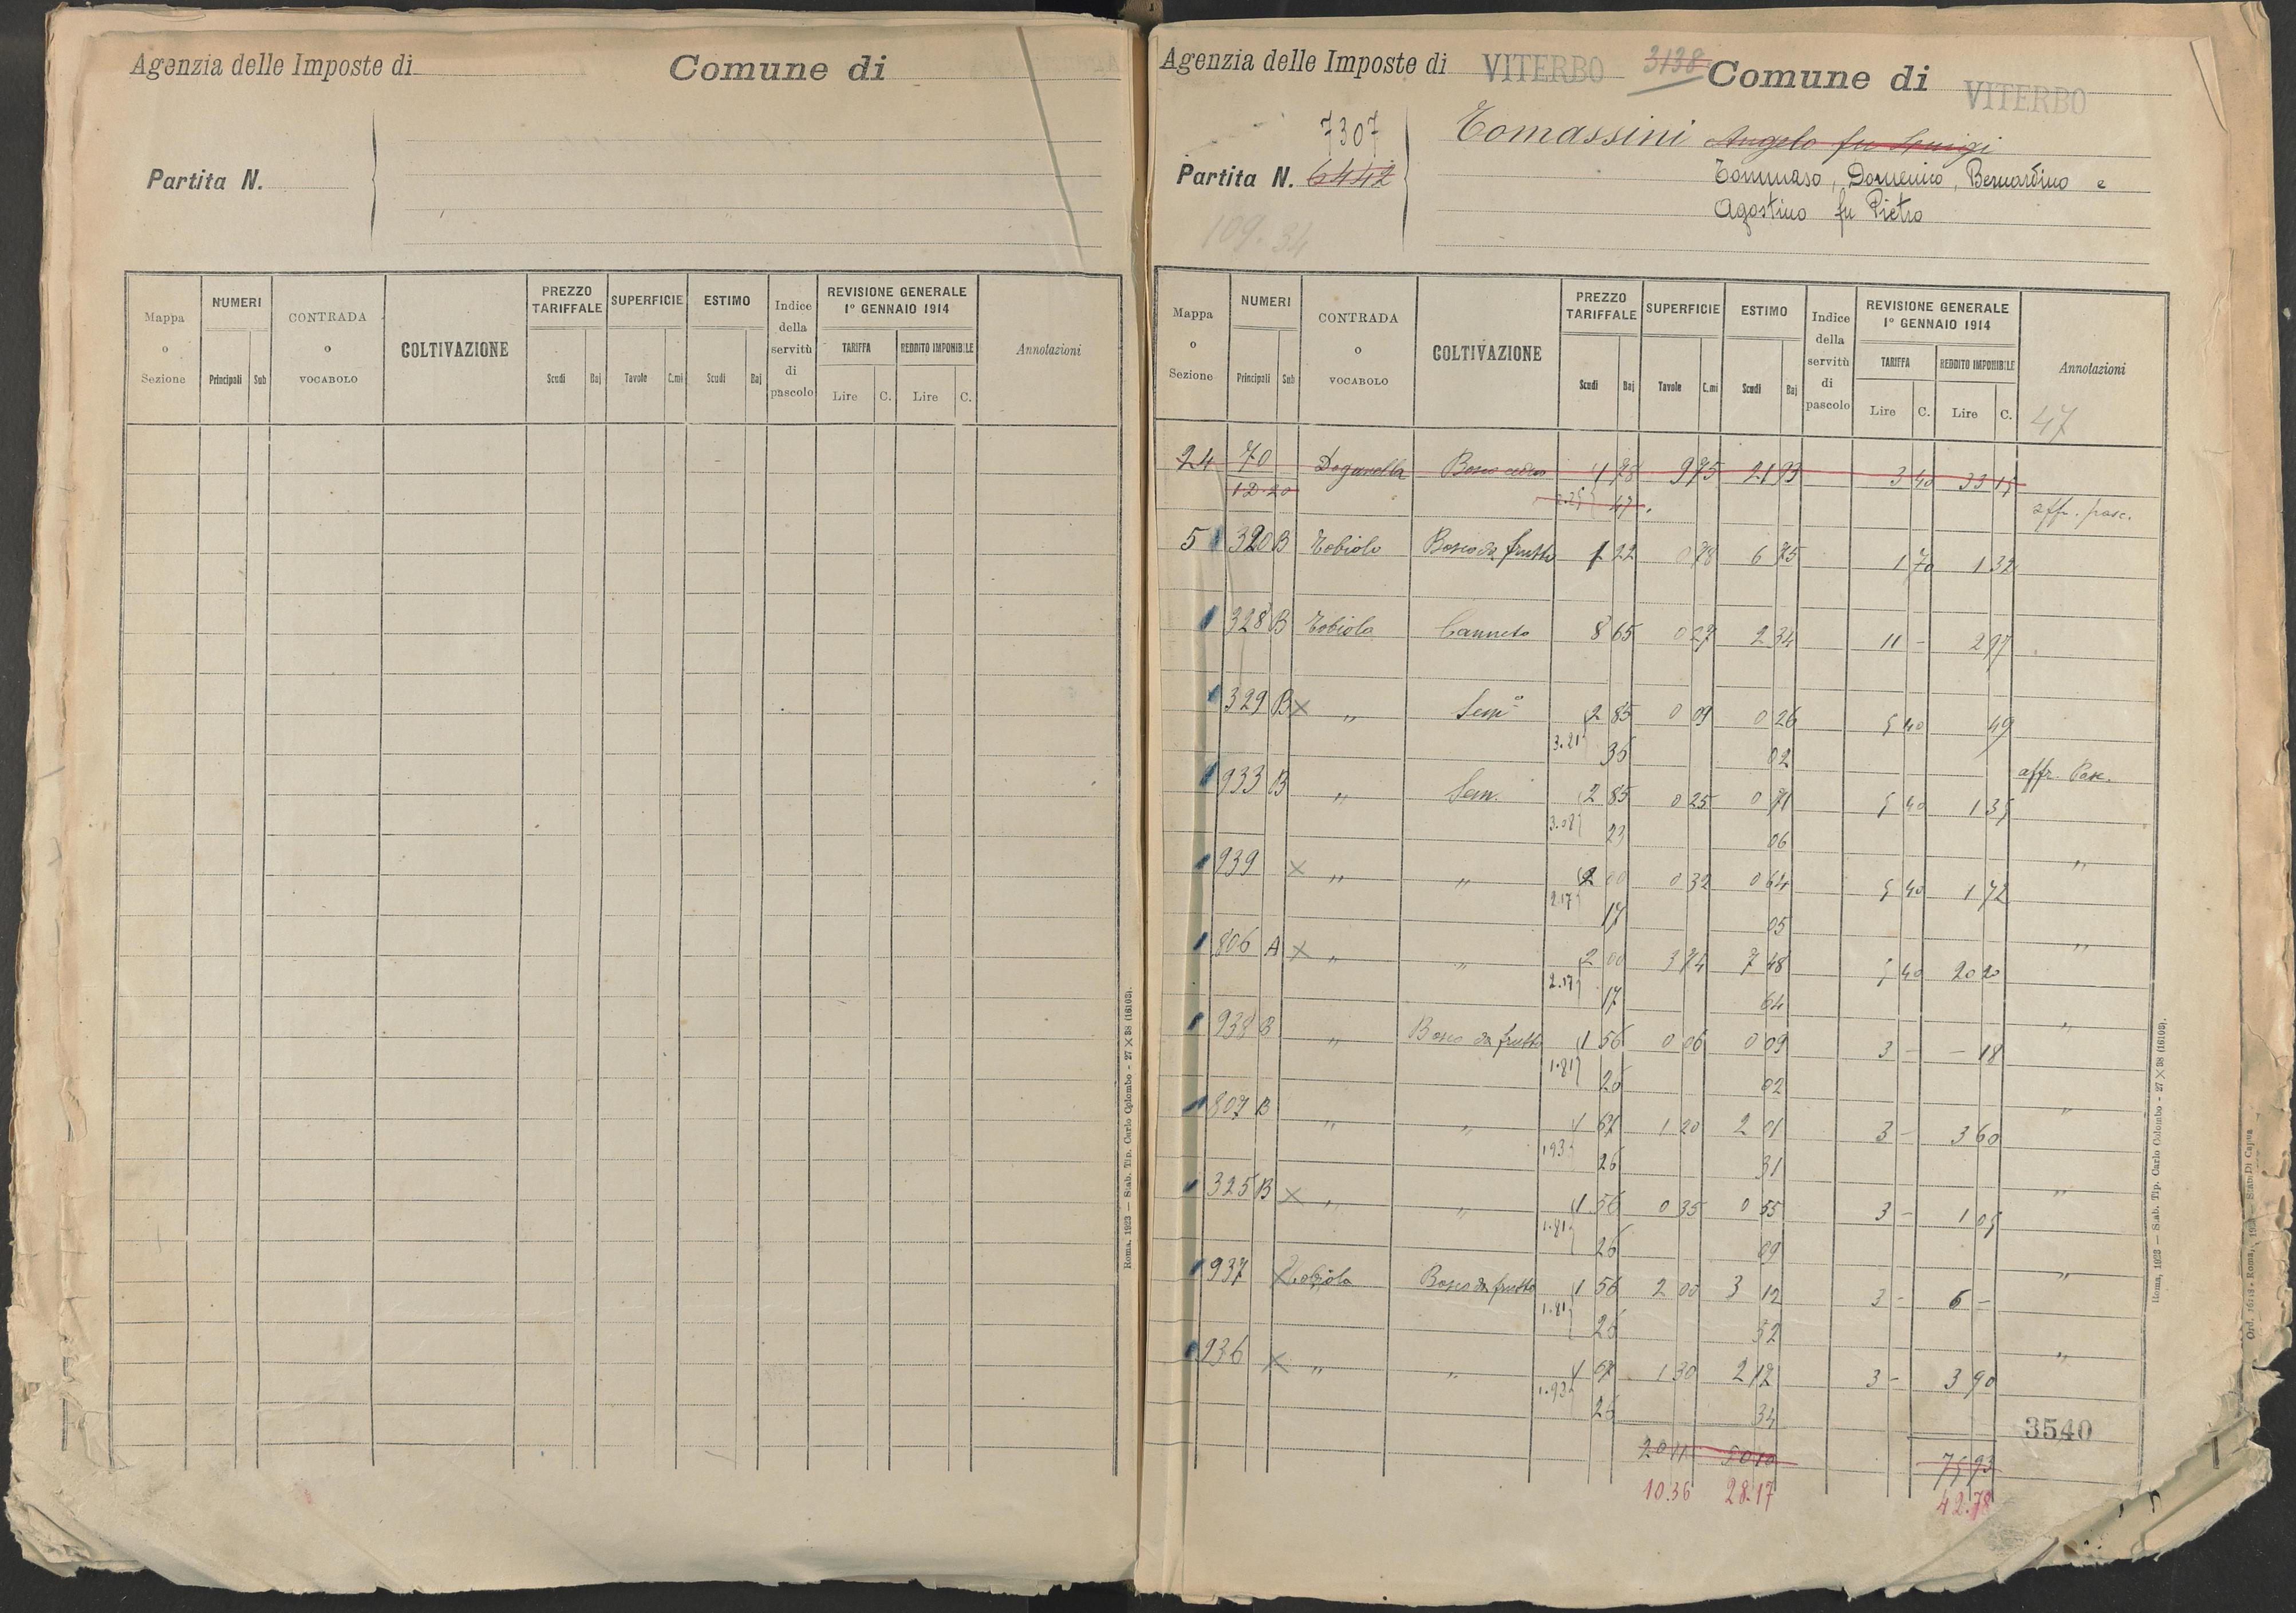 Agenzia delle Imposte di
Comune di
Partita N.
Mappa o Sezione
NUMERI
Principali Sub
CONTRADA o VOCABOLO
COLTIVAZIONE
PREZZO TARIFFALE
Scudi Baj
SUPERFICIE
Tavole C.mi
ESTIMO
Scudi Baj
Indice della servitù di pascolo
REVISIONE GENERALE
1° GENNAIO 1914
TARIFFA
Lire C.
REDDITO IMPONIBILE
Lire C.
Annotazioni
Roma, 1923 — Stab. Tip. Carlo Colombo - 27 × 38 (16103).
Agenzia delle Imposte di VITERBO 3138 Comune di VITERBO
7307
Partita N. 6442
109.34
Tomassini Angelo fu Luigi
Tommaso, Domenico, Bernardino e
Agostino fu Pietro
Mappa o Sezione
NUMERI
Principali Sub
CONTRADA o VOCABOLO
COLTIVAZIONE
PREZZO TARIFFALE
Scudi Baj
SUPERFICIE
Tavole C.mi
ESTIMO
Scudi Baj
Indice della servitù di pascolo
REVISIONE GENERALE
1° GENNAIO 1914
TARIFFA
Lire C.
REDDITO IMPONIBILE
Lire C.
Annotazioni
47
24 70 Doganella Bosco ceduo 1 78 9 75 21 93 3 40 33 15
12.20 2.25 47
affr. pasc.
5 1 320 B Tobiolo Bosco da frutto 1 22 0 78 6 75 1 70 1 32
1 328 B Tobiola Canneto 8 65 0 27 2 34 11 - 2 97
1 329 B x " Sem° 2 85 0 09 0 26 5 40 49
3.21 35 02
affr. Pasc.
1 933 B " Sem. 2 85 0 25 0 71 5 40 1 35
3.08 23 06
"
1 939 x " " 2 00 0 32 0 64 5 40 1 72
2.17 17 05
"
1 806 A x " " 2 00 3 74 7 48 5 40 20 20
2.17 17 64
"
1 938 B " Bosco da frutto 1 56 0 06 0 09 3 - - 18
1.81 25 02
"
1 807 B " " 1 67 1 20 2 01 3 - 3 60
1.93 26 31
"
1 325 B x " " 1 56 0 35 0 55 3 - 1 05
1.81 26 09
"
1 937 x Tobiola Bosco da frutto 1 56 2 00 3 12 3 - 6 -
1.81 25 52
"
1 936 x " " 1 67 1 30 2 17 3 - 3 90
1.93 26 34
3540
20 11 50 10 75 93
10.36 28.17 42.78
Roma, 1923 — Stab. Tip. Carlo Colombo - 27 × 38 (16103).